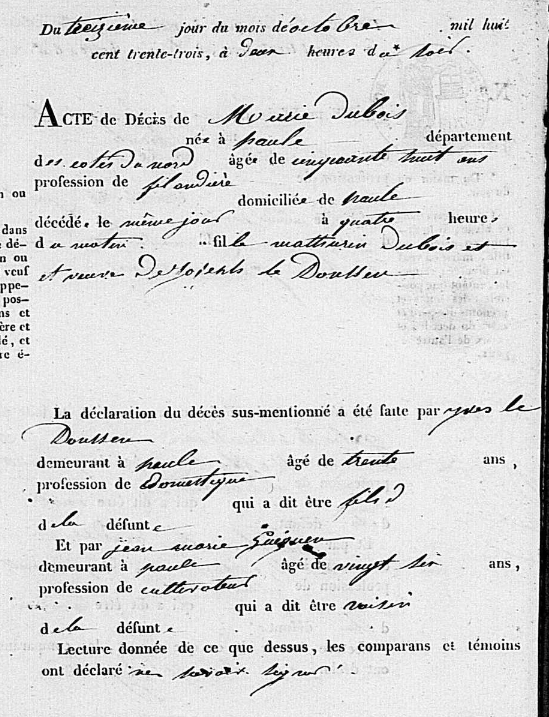 Du treizième jour du mois d'octobre mil huit
cent trente-trois, à deux heures du soir.
ACTE de Décès de Marie Dubois
née à paule département
des cotes du nord âgée de cinquante huit ans
profession de filandière
domiciliée de paule
décédé. le même jour à quatre heures
du matin. fille mathurin Dubois et
et veuve De joseph le Doussen
La déclaration du décès sus-mentionné a été faite par yves le
Doussen
demeurant à paule âgé de trente ans,
profession de Domestique
qui a dit être fils d
de la défunte
Et par jean marie
demeurant à paule âgé de vingt six ans,
profession de cultivateur
qui a dit être voisin
de la défunte
Lecture donnée de ce que dessus, les comparans et témoins
ont déclaré ne savoir signer.
n ou
dans
dé-
n ou
veuf
ppe-
pos-
ns et
ère et
lé, et
re é-